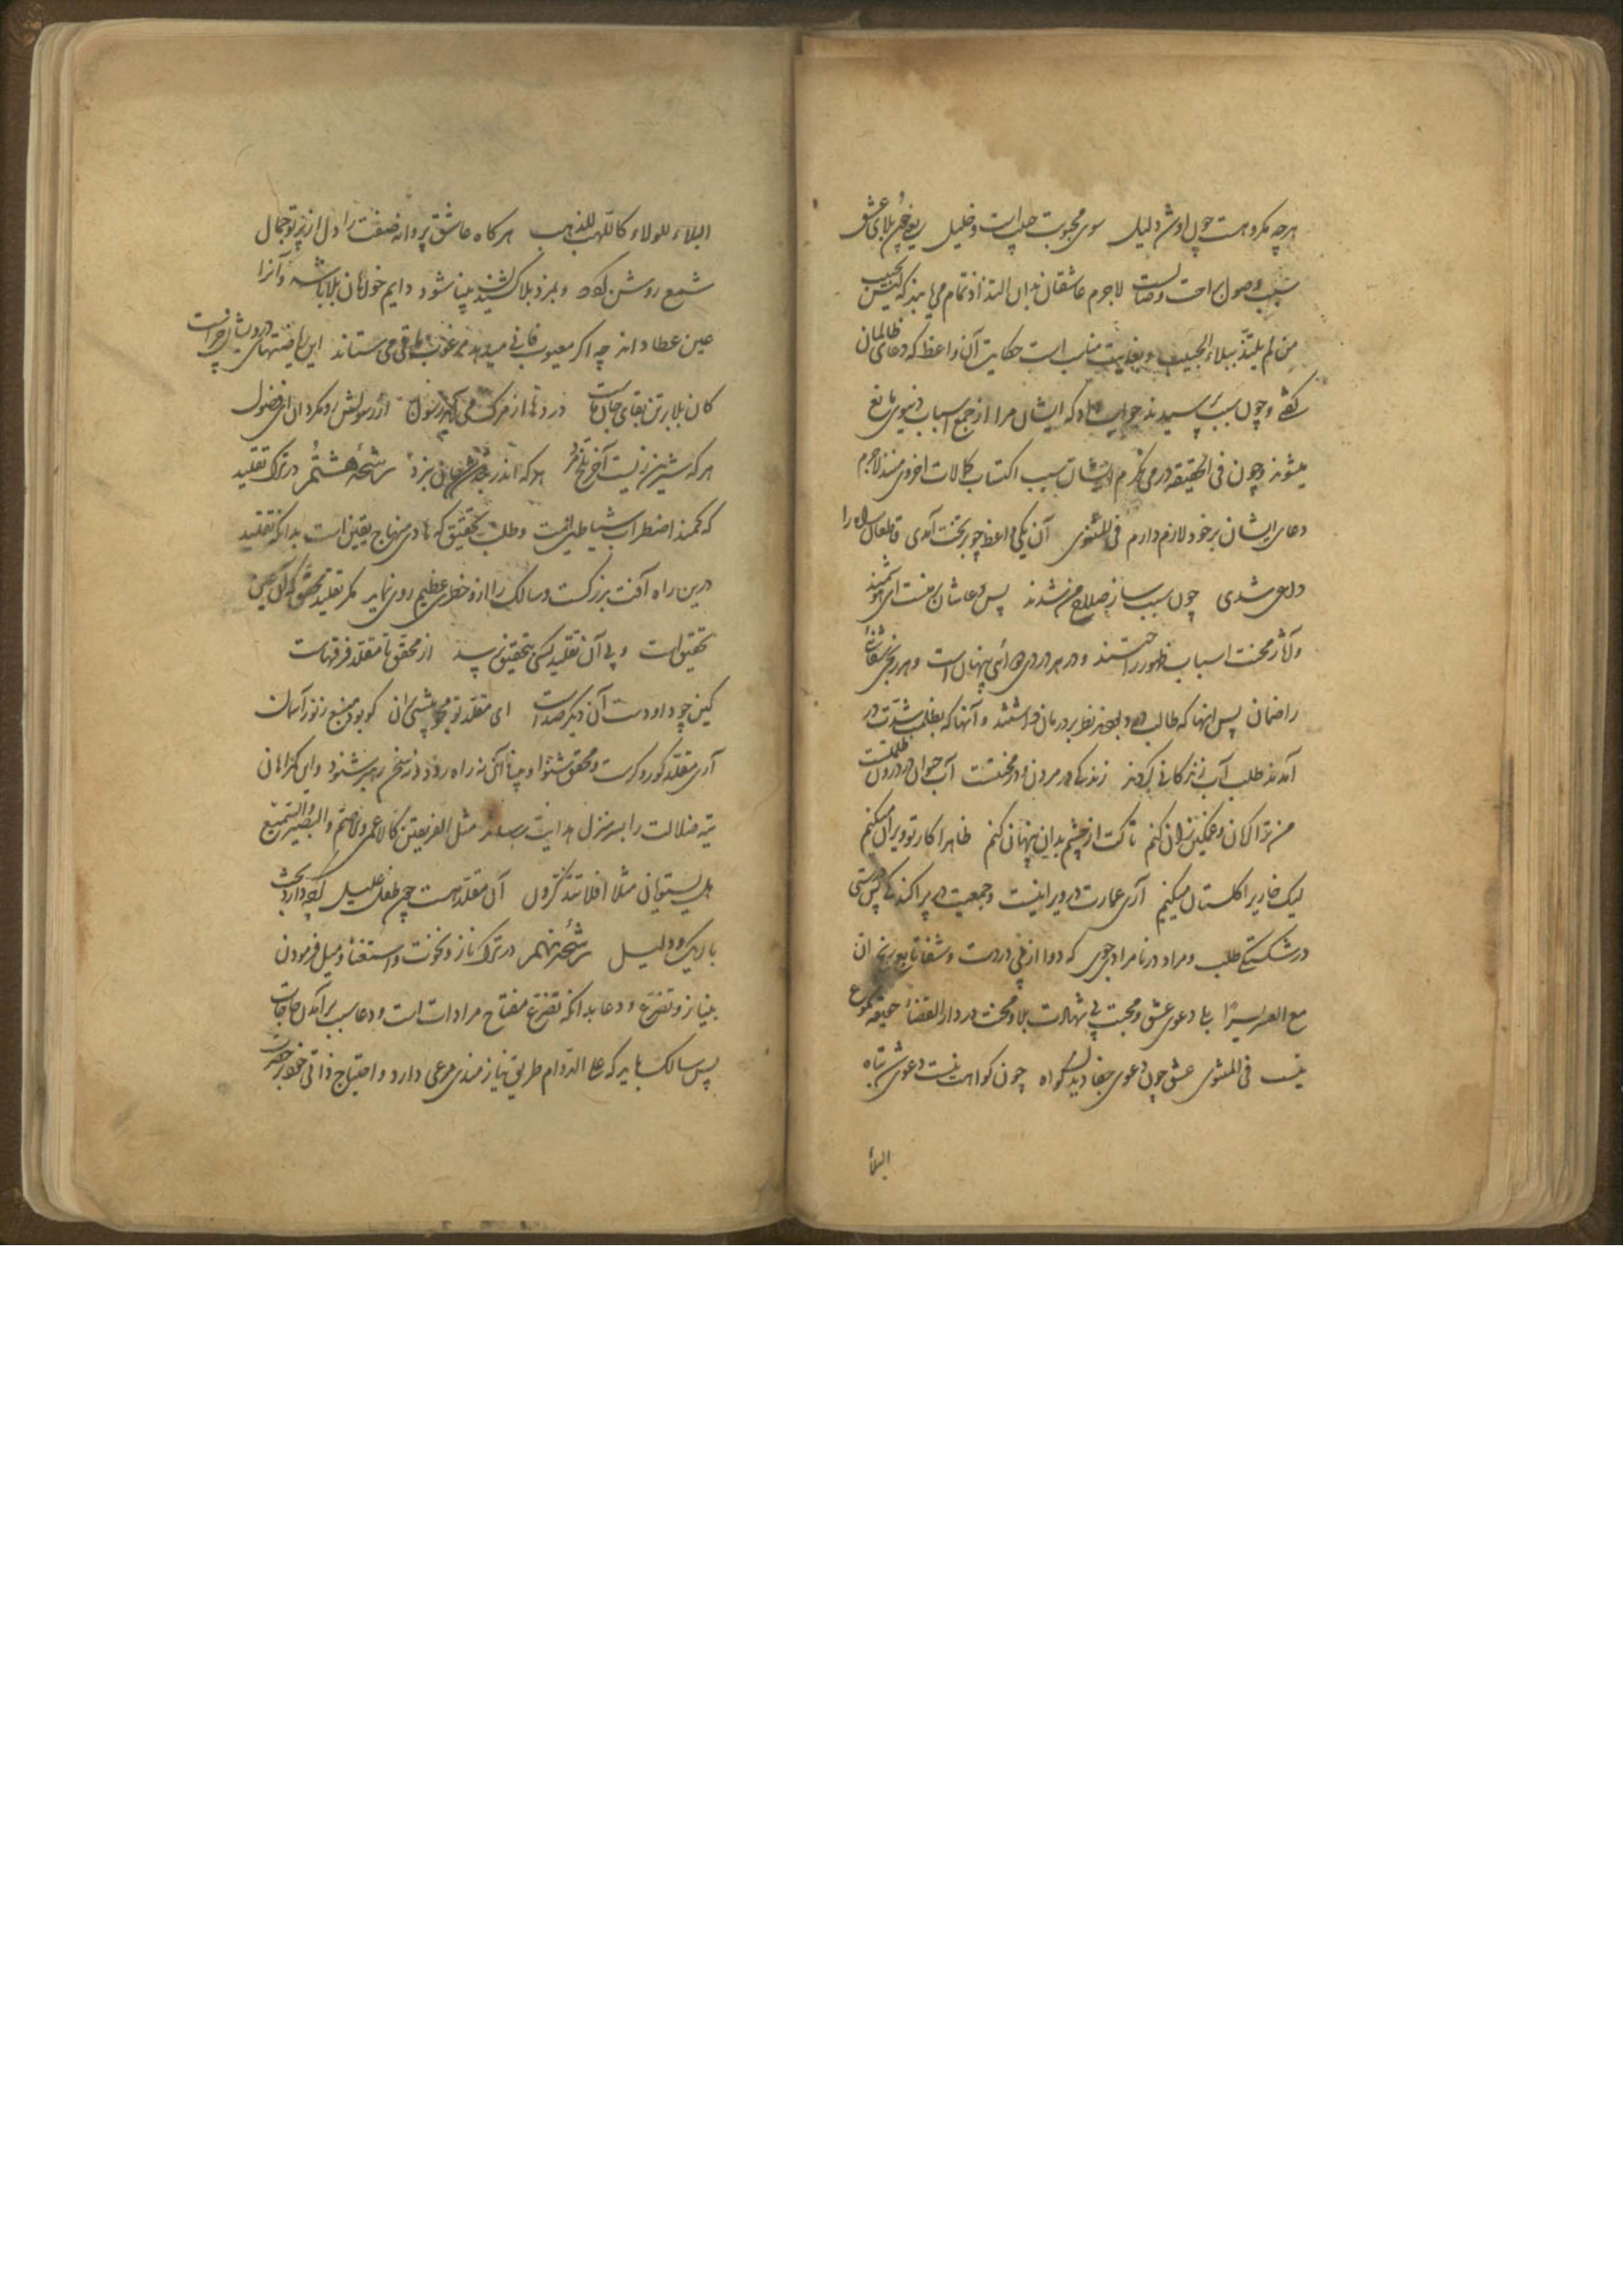 هرچه مکروهست چون او شد دلیل سوی محبوبت حبیب است و خلیل یعنی چون بلای عشق
سبب وصول راحت وصالست لاجرم عاشقان بدان التذاذ تمام می یابند که لیس الحبیب
من لم یلتذ ببلاء الحبیب و بغایت مناسب است حکایت آن واعظ که دعای ظالمان
گفتی و چون سبب پرسیدند جواب داد که ایشان مرا از جمع اسباب دنیوی مانع
میشوند و چون فی الحقیقه در می نگرم ایشان سبب اکتساب کمالات اخروی منند لاجرم
دعای ایشان بر خود لازم دارم فی المثنوی آن یکی واعظ چو بر تخت آمدی قاطعان راه را
داعی شدی چون سبب ساز صلاح من شدند پس دعاشان بر منست ای هوشمند
و آثار محنت اسباب ظهور راحتند و در هر دردی دوائی پنهان است و هر رنجی شفائی
را ضمان پس اینها که طالب بودند نظر بر درمان نداشتند و آنها که بظلمت شدت در
آمدند طلب آب زندگانی کردند زندگی در مردن و در محنتست آب حیوان در درون ظلمتست
من ترا غمکین و گریان زان کنم تا کت از چشم بدان پنهان کنم ظاهرا کار تو ویران میکنم
لیک خاریرا کلستان میکنیم آری عمارت در ویرانیست و جمعیت در پراکندگی پس درستی
در شکستگی طلب و مراد در نامرادی جوی که دوا از پی دردست و شفا تابع رنج ان
مع العسر یسرا بلی دعوی عشق و محبت بی شهادت بلا و محنت در دار القضاء حقیقه مسموع
نیست فی المثنوی عشق چون دعوی جفا دیدن کواه چون کواهت نیست دعوی شد تباه
البلاء
البلاء للولاء کاللهب للذهب هرکاه عاشق پروانه صفت را دل از پرتو جمال
شمع روشن کردد و بمزد بلا کشیدن بینا شود دایم خواهان بلا باشد و آنرا
عین عطا داند چه اکر معیوب فانی میدهد مرغوب باقی می ستاند این ریاضتهای درویشان چراست
کان بلا بر تن بقای جانهاست دردها از مرک می آید رسول از رسولش رو مکردان ای فضول
هر که شیرین زیست آخر تلخ مرد هر که اندر بند تن شد جان نبرد رشحه هشتم در ترک تقلید
که کمند اضطراب شیاطین است و طلب تحقیق که هادی منهاج یقین است بدانکه تقلید
درین راه آفت بزرکست و سالک را ازو خطری عظیم روی نماید مکر تقلید محقق که آن عین
تحقیق است و بی آن تقلید کسی بتحقیق نرسد از محقق تا مقلد فرقهاست
کین چو داودست آن دیکر صداست ای مقلد تو مجو پیشی بران کو بود منبع ز نور آسمان
آری مقلد کور و کرست و محقق شنوا و بینا آن نه راه رود نه سخن رهبر شنود و این کمراهان
تیه ضلالت را بسر منزل هدایت رساند مثل الفریقین کالاعمی والاصم والبصیر والسمیع
هل یستویان مثلا افلا تتذکرون آن مقلد هست چون طفل علیل کرچه دارد بحث
باریک و دلیل رشحه نهم در ترک ناز و نخوت و استغنا و میل فرمودن
بنیاز و تضرع و دعا بدانکه تضرع مفتاح مرادات است و دعا سبب برآمدن حاجات
پس سالک باید که علی الدوام طریق نیازمندی مرعی دارد و احتیاج ذاتی خود بحضرت